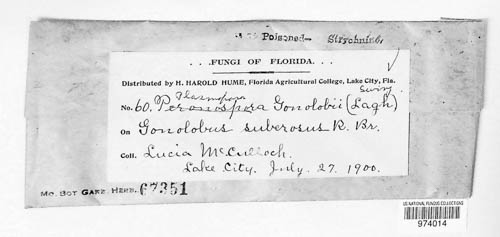 Poisoned— Strychnine.
. . .FUNGI OF FLORIDA. . .
Distributed by H. HAROLD HUME, Florida Agricultural College, Lake City, Fla.
Plasmopara Swing.
No. 60. Peronospora Gonolobii (Lagh)
On Gonolobus suberosus R. Br.
Coll. Lucia McCulloch.
Lake City, July. 27. 1900.
MO. BOT GARD. HERB. 67351
US NATIONAL FUNGUS COLLECTIONS
974014